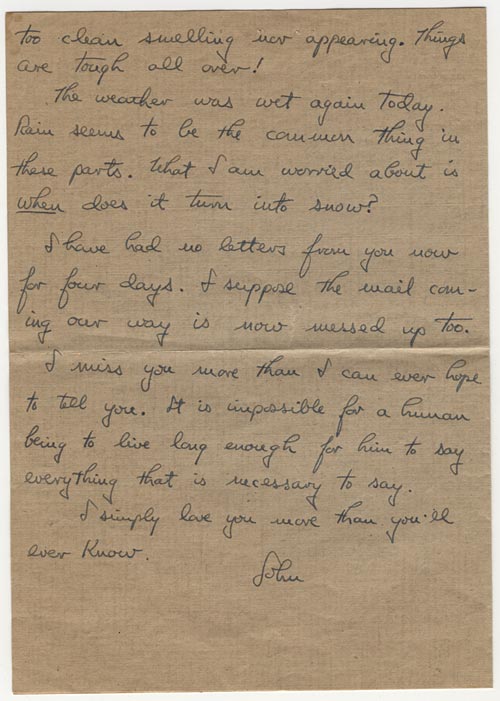 too clean smelling nor appearing. Things
are tough all over!
The weather was wet again today.
Rain seems to be the common thing in
these parts. What I am worried about is
when does it turn into snow?
I have had no letters from you now
for four days. I suppose the mail com-
ing our way is now messed up too.
I miss you more than I can ever hope
to tell you. It is impossible for a human
being to live long enough for him to say
everything that is necessary to say.
I simply love you more than you'll
ever know.
John